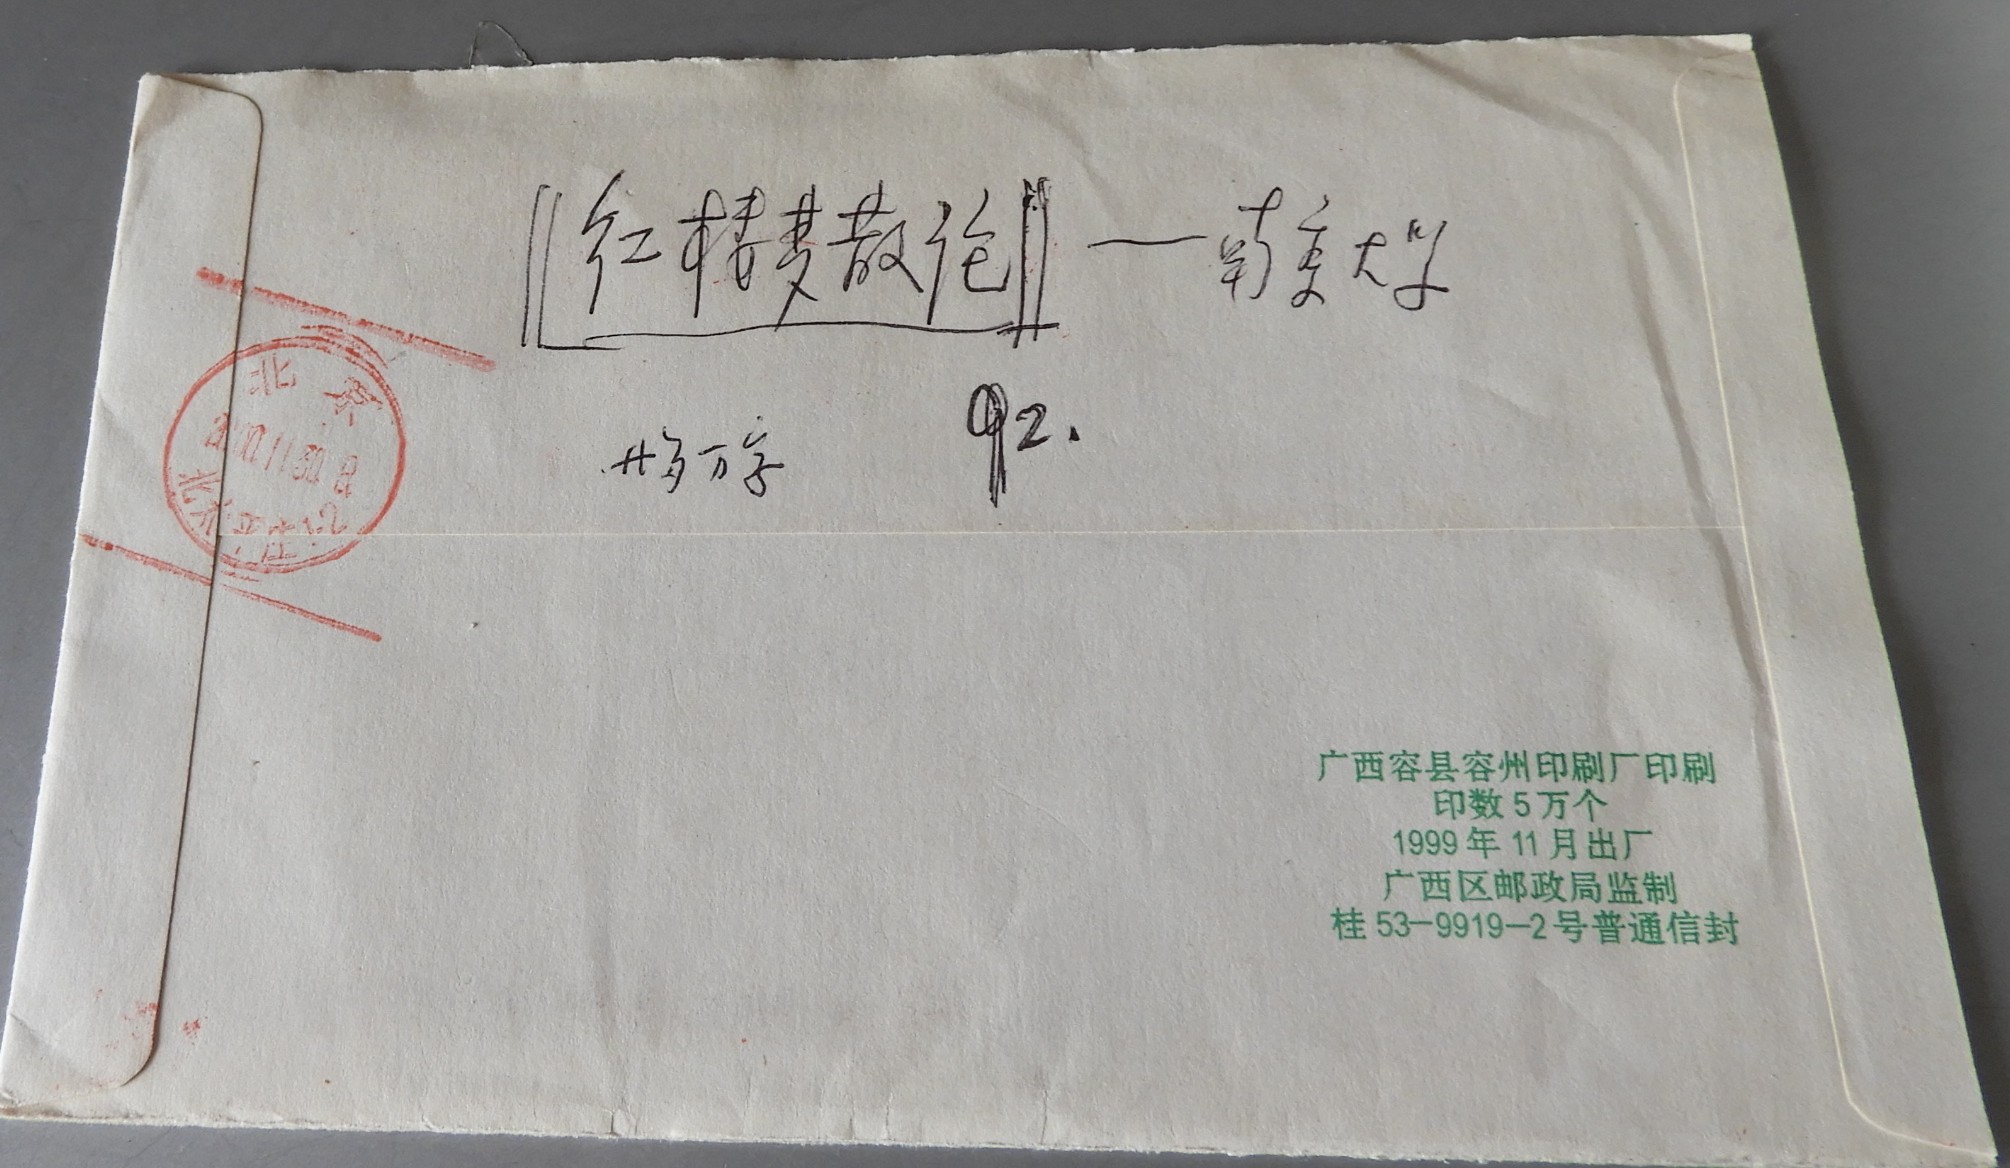 红楼梦散论——南京大学
廿多万字 92.
北京
2000.11.30
广西容县容州印刷厂印刷
印数5万个
1999年11月出厂
广西区邮政局监制
桂53-9919-2号普通信封